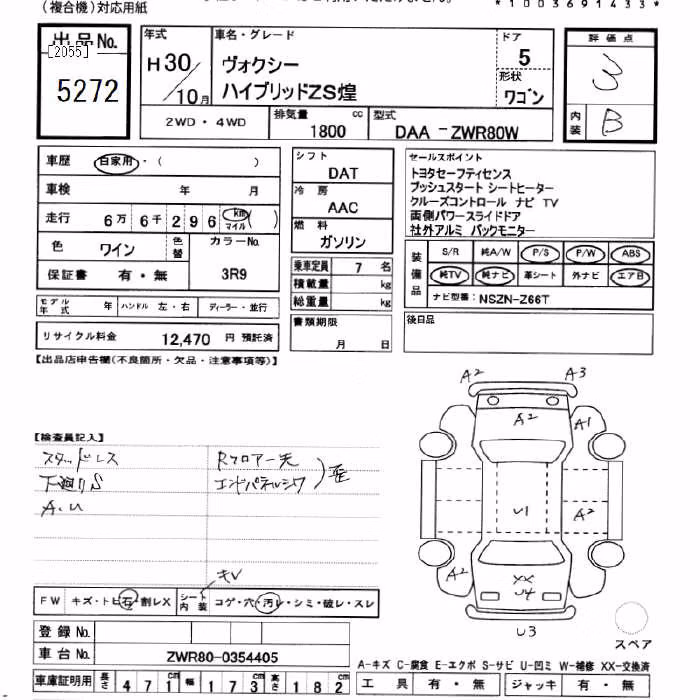 (複合機)対応用紙
*1003691433*
出品No.
[2055]
5272
年式
H30/10月
車名・グレード
ヴォクシー
ハイブリッドZS煌
ドア
5
形状
ワゴン
評価点
3
内装
B
2WD・4WD
排気量
1800
cc
型式
DAA -ZWR80W
車歴
自家用・( )
車検
年 月
走行
6万 6千 2 9 6 km マイル ( )
色
ワイン
色替
カラーNo.
保証書
有・無
3R9
モデル年式
年
ハンドル 左・右
ディーラー・並行
リサイクル料金
12,470 円 預託済
シフト
DAT
冷房
AAC
燃料
ガソリン
乗車定員 7 名
積載量 kg
総重量 kg
書類期限
月 日
セールスポイント
トヨタセーフティセンス
プッシュスタート シートヒーター
クルーズコントロール ナビ TV
両側パワースライドドア
社外アルミ バックモニター
装備品
S/R 純A/W P/S P/W ABS
純TV 純ナビ 革シート 外ナビ エアB
ナビ型番: NSZN-Z66T
後日品
【出品店申告欄(不良箇所・欠品・注意事項等)】
【検査員記入】
スタッドレス
下廻りS
A.U
Rフロアー先
エンドパネルシワ
)歪
キレ
FW
キズ・トビ石・割レX
シート内装
コゲ・穴・汚レ・シミ・破レ・スレ
登録No.
車台No.
ZWR80-0354405
車庫証明用
長さ 471 幅 173 高さ 182
A2
A3
A2
A1
U1
A2
A2
XX
U4
U3
スペア
A-キズ C-腐食 E-エクボ S-サビ U-凹ミ W-補修 XX-交換済
工具 有・無
ジャッキ 有・無